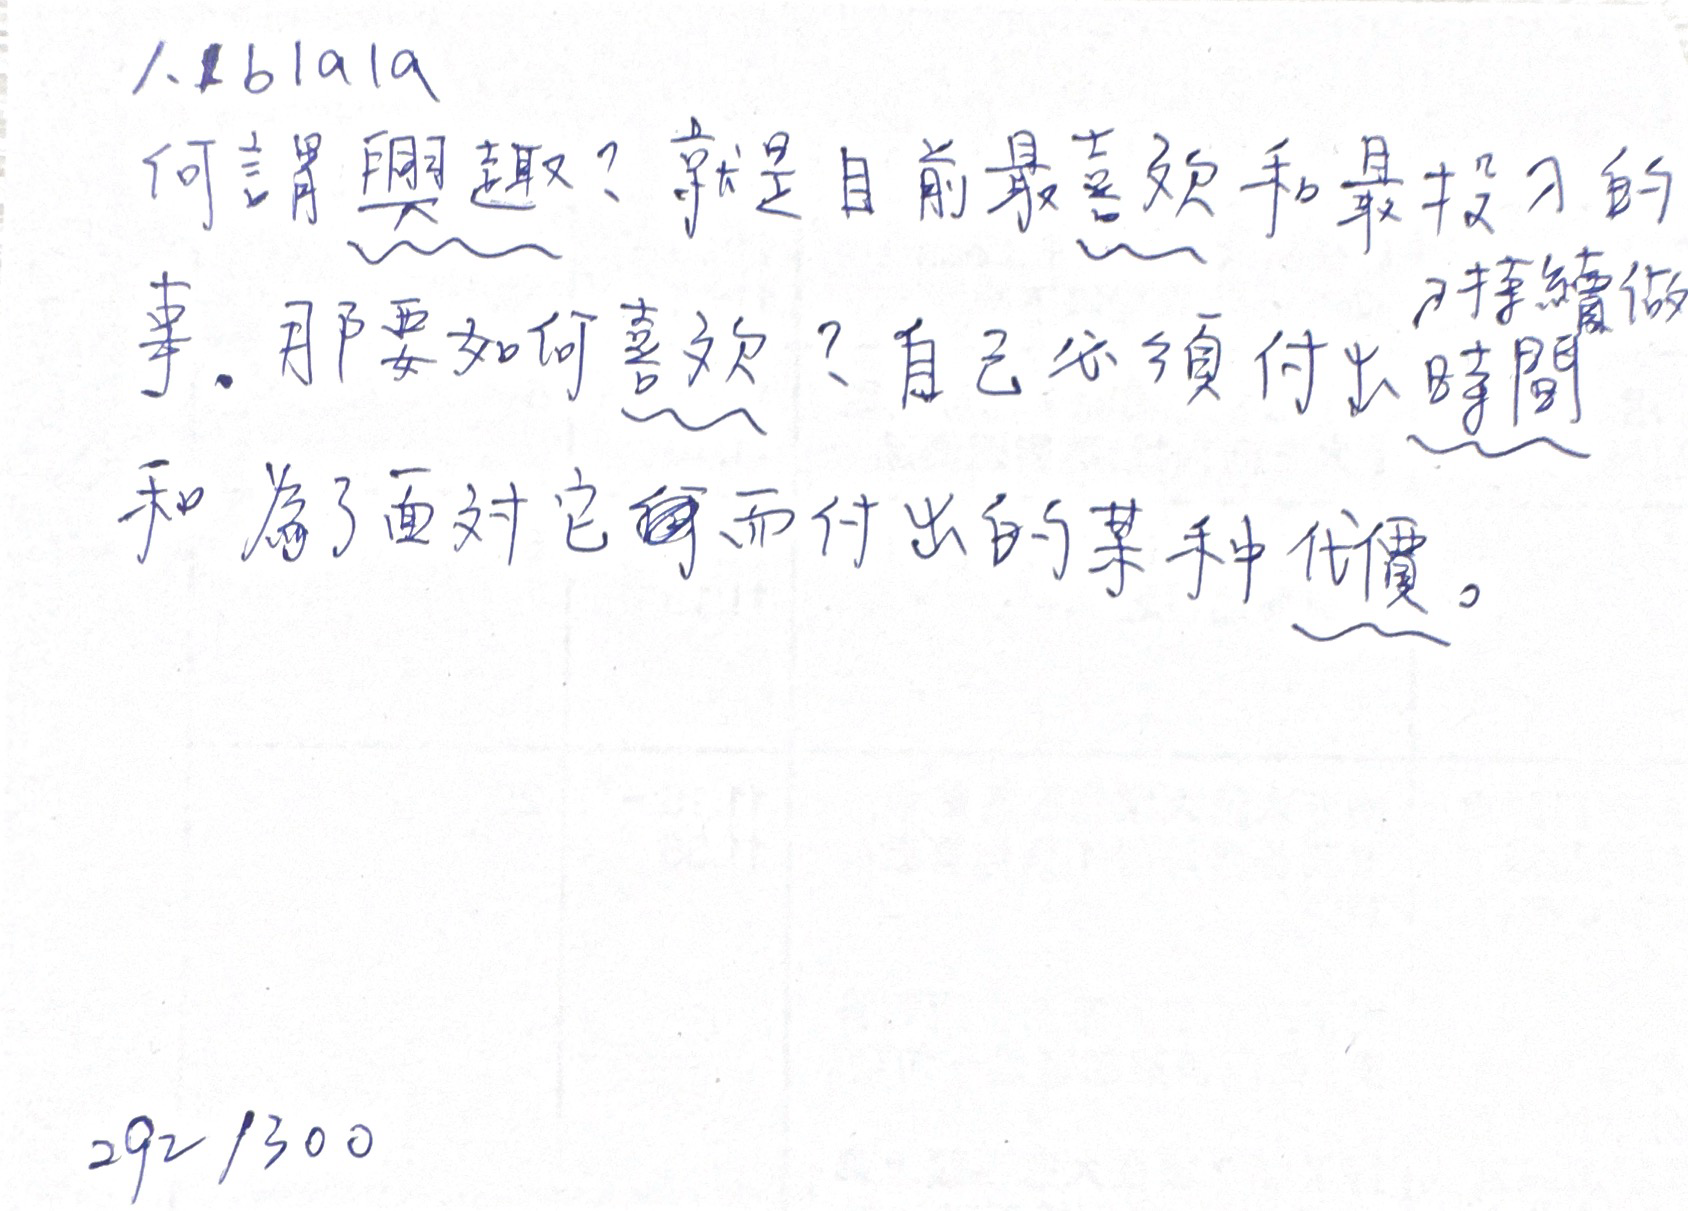 1. blala
何謂興趣？就是目前最喜欢和最投入的
事. 那要如何喜欢？自己必須付出時間
↗持續做
和為了面對它而付出的某种代價。
292/300